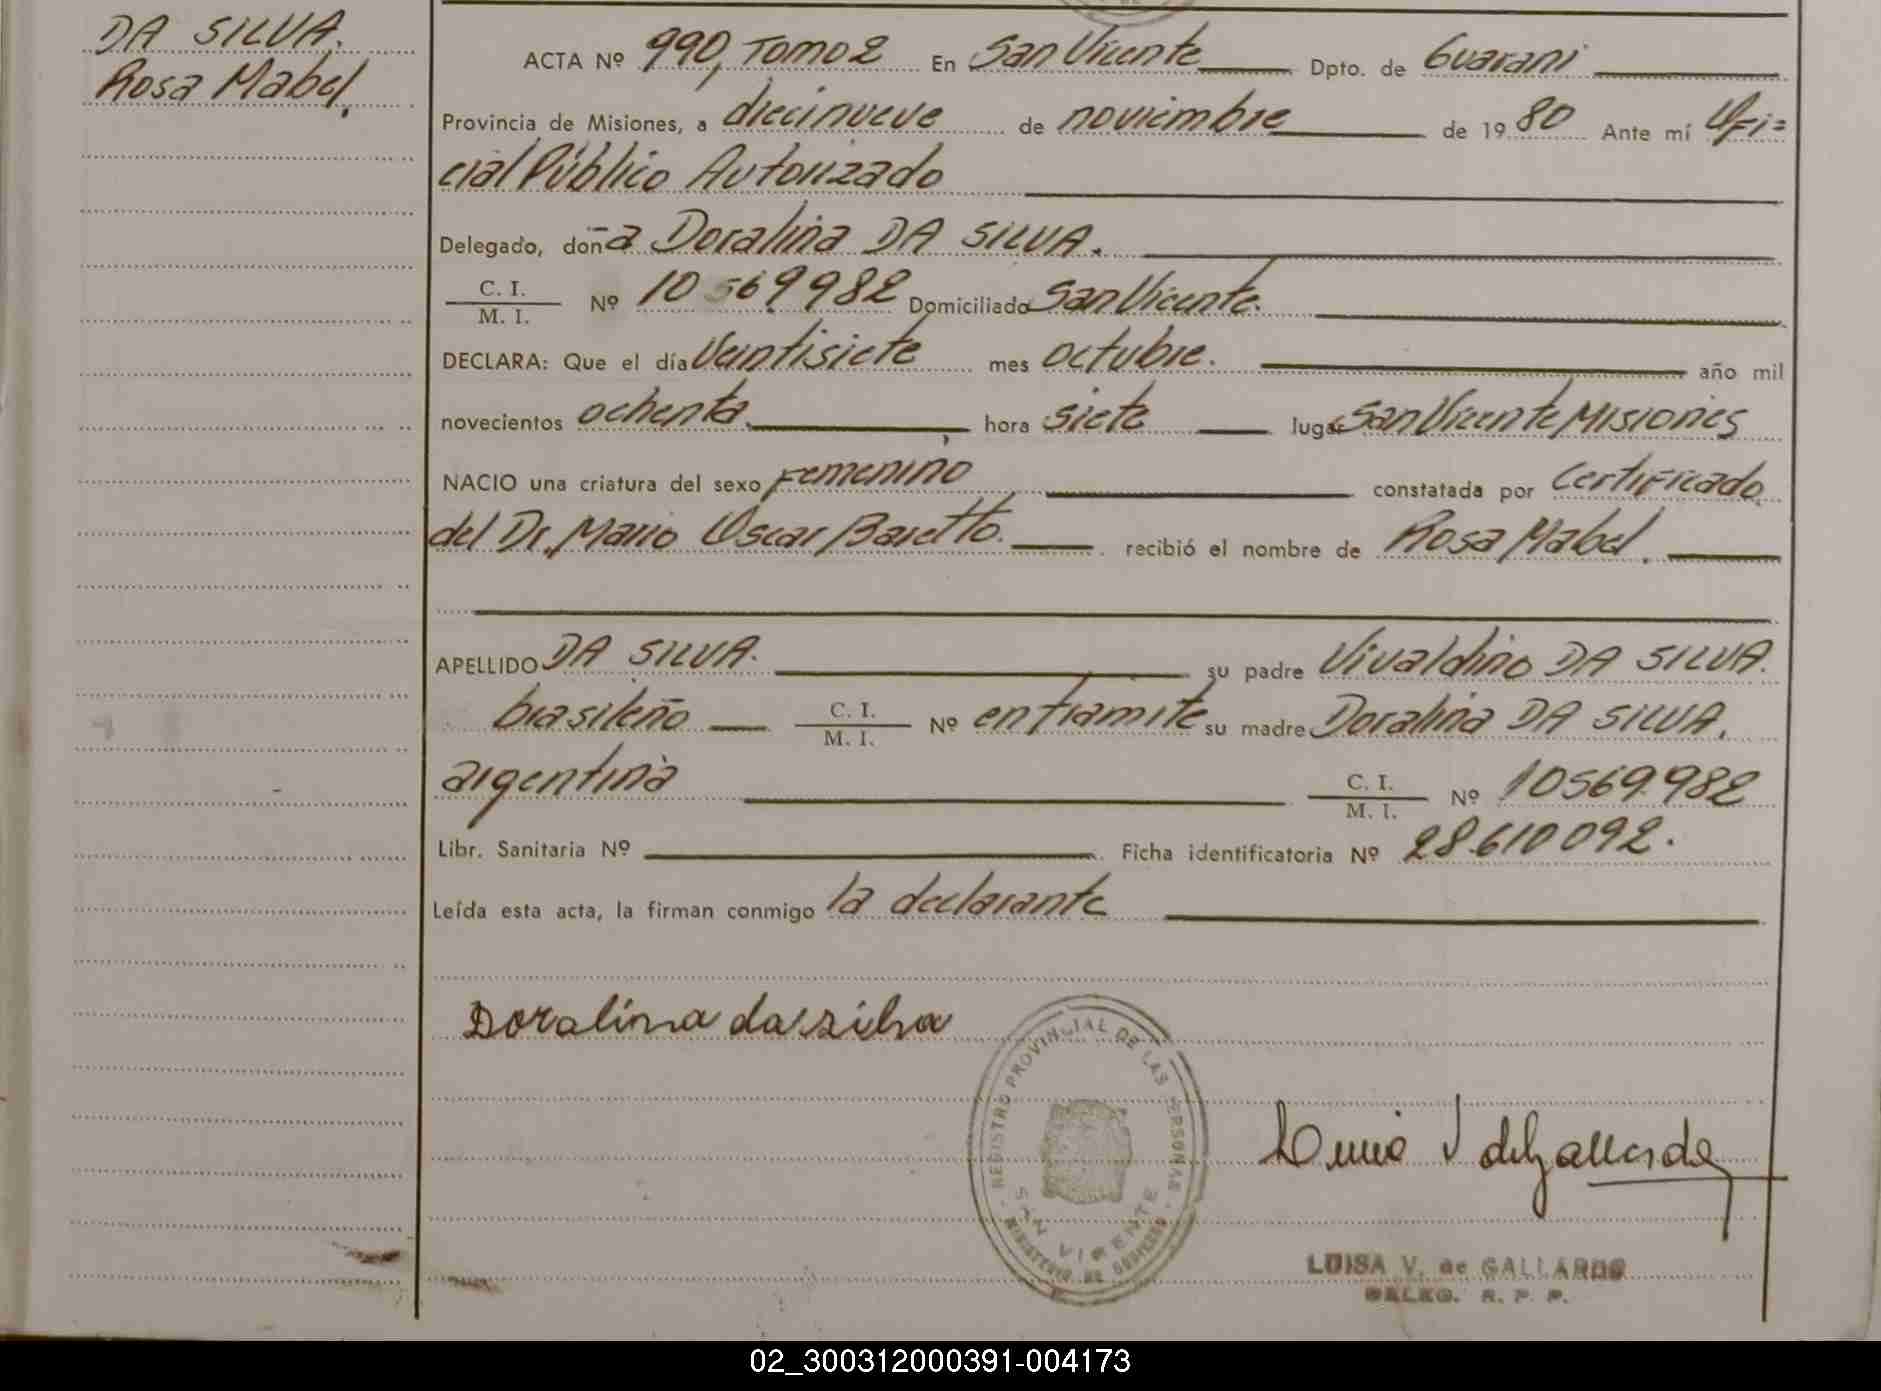 DA SILVA.
Rosa Mabel.
ACTA Nº 990, Tomo 2 En San Vicente Dpto. de Guarani
Provincia de Misiones, a diecinueve de noviembre de 1980 Ante mí Ofi=
cial Público Autorizado
Delegado, doña Doralina DA SILVA.
C. I.
M. I. Nº 10 569982 Domiciliado San Vicente.
DECLARA: Que el día Veintisiete mes octubre. año mil
novecientos ochenta, hora siete lugar San Vicente Misiones
NACIO una criatura del sexo Femenino constatada por Certificado
del Dr. Mario Oscar Baretto. recibió el nombre de Rosa Mabel.
APELLIDO DA SILVA. su padre Vivaldino DA SILVA.
brasileño C. I.
M. I. Nº en tramite su madre Doralina DA SILVA.
argentina C. I.
M. I. Nº 10569982
Libr. Sanitaria Nº Ficha identificatoria Nº 28.610092.
Leída esta acta, la firman conmigo la declarante
Doralina da silva
REGISTRO PROVINCIAL DE LAS PERSONAS
SAN VICENTE
MINISTERIO DE GOBIERNO
LUISA V. de GALLARDO
DELEG. R. P. P.
02_300312000391-004173